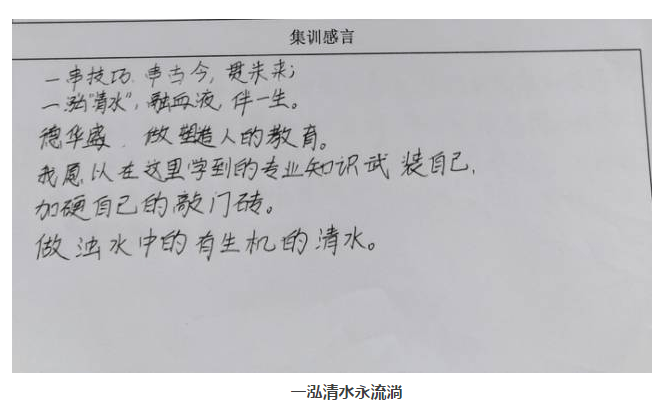 集训感言
一串技巧,串古今,贯未来;
一泓"清水",融血液,伴一生。
德华盛,做塑造人的教育。
我愿以在这里学到的专业知识武装自己,
加硬自己的敲门砖。
做浊水中的有生机的清水。
一泓清水永流淌